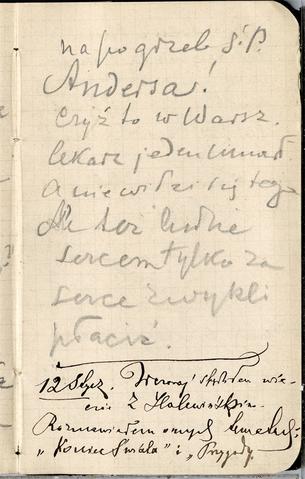 na pogrzeb ś.p.
Andersa!
Czyż to w Warsz.
lekarz jeden umarł
A nie widzi się tego
Ale też ludzie
sercem tylko za
serce zwykli
płacić.
12 Stycz. Wczoraj byłem wie-
Rozmawiałem o mych
„Koniec Świata” i „Przygody